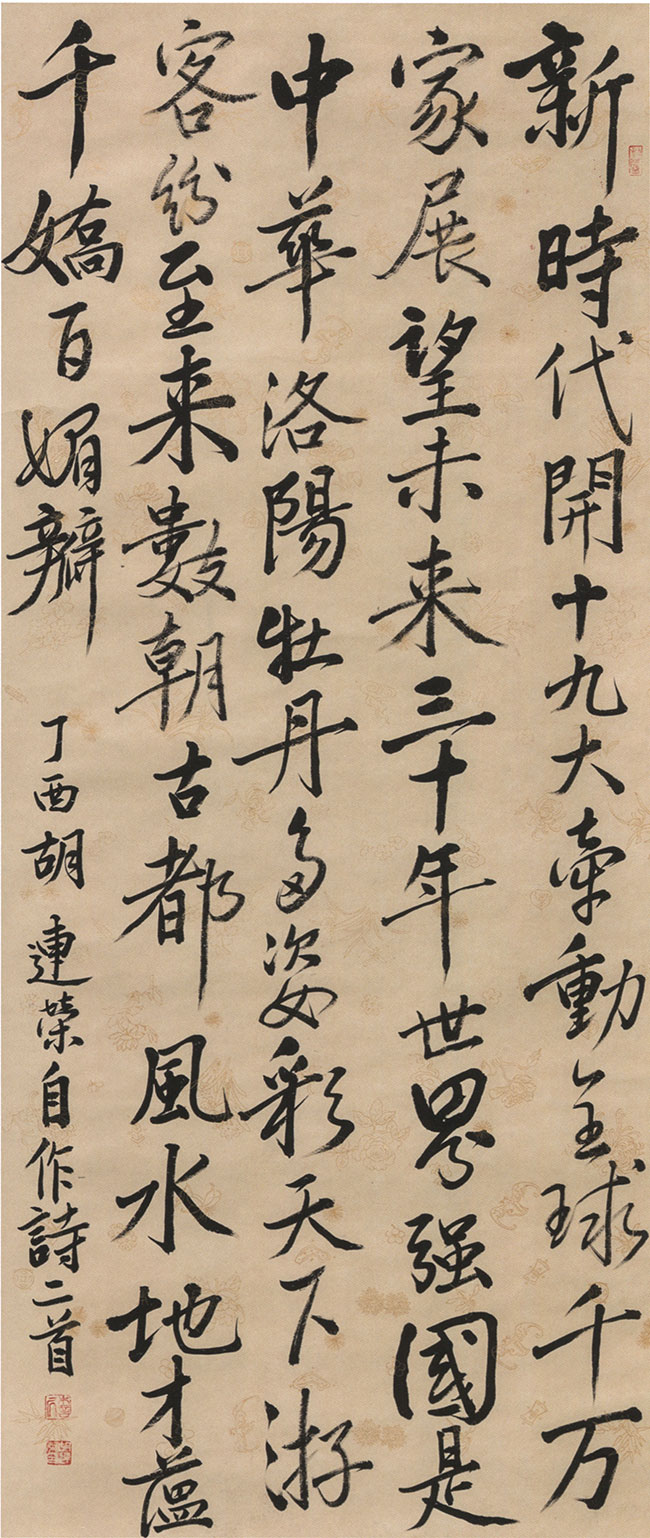 新時代開十九大牽動全球千万
家展望未来三十年世界强國是
中華洛陽牡丹多姿彩天下游
客紛至来數朝古都風水地才蕴
千嬌百媚瓣
丁酉胡連荣自作詩二首